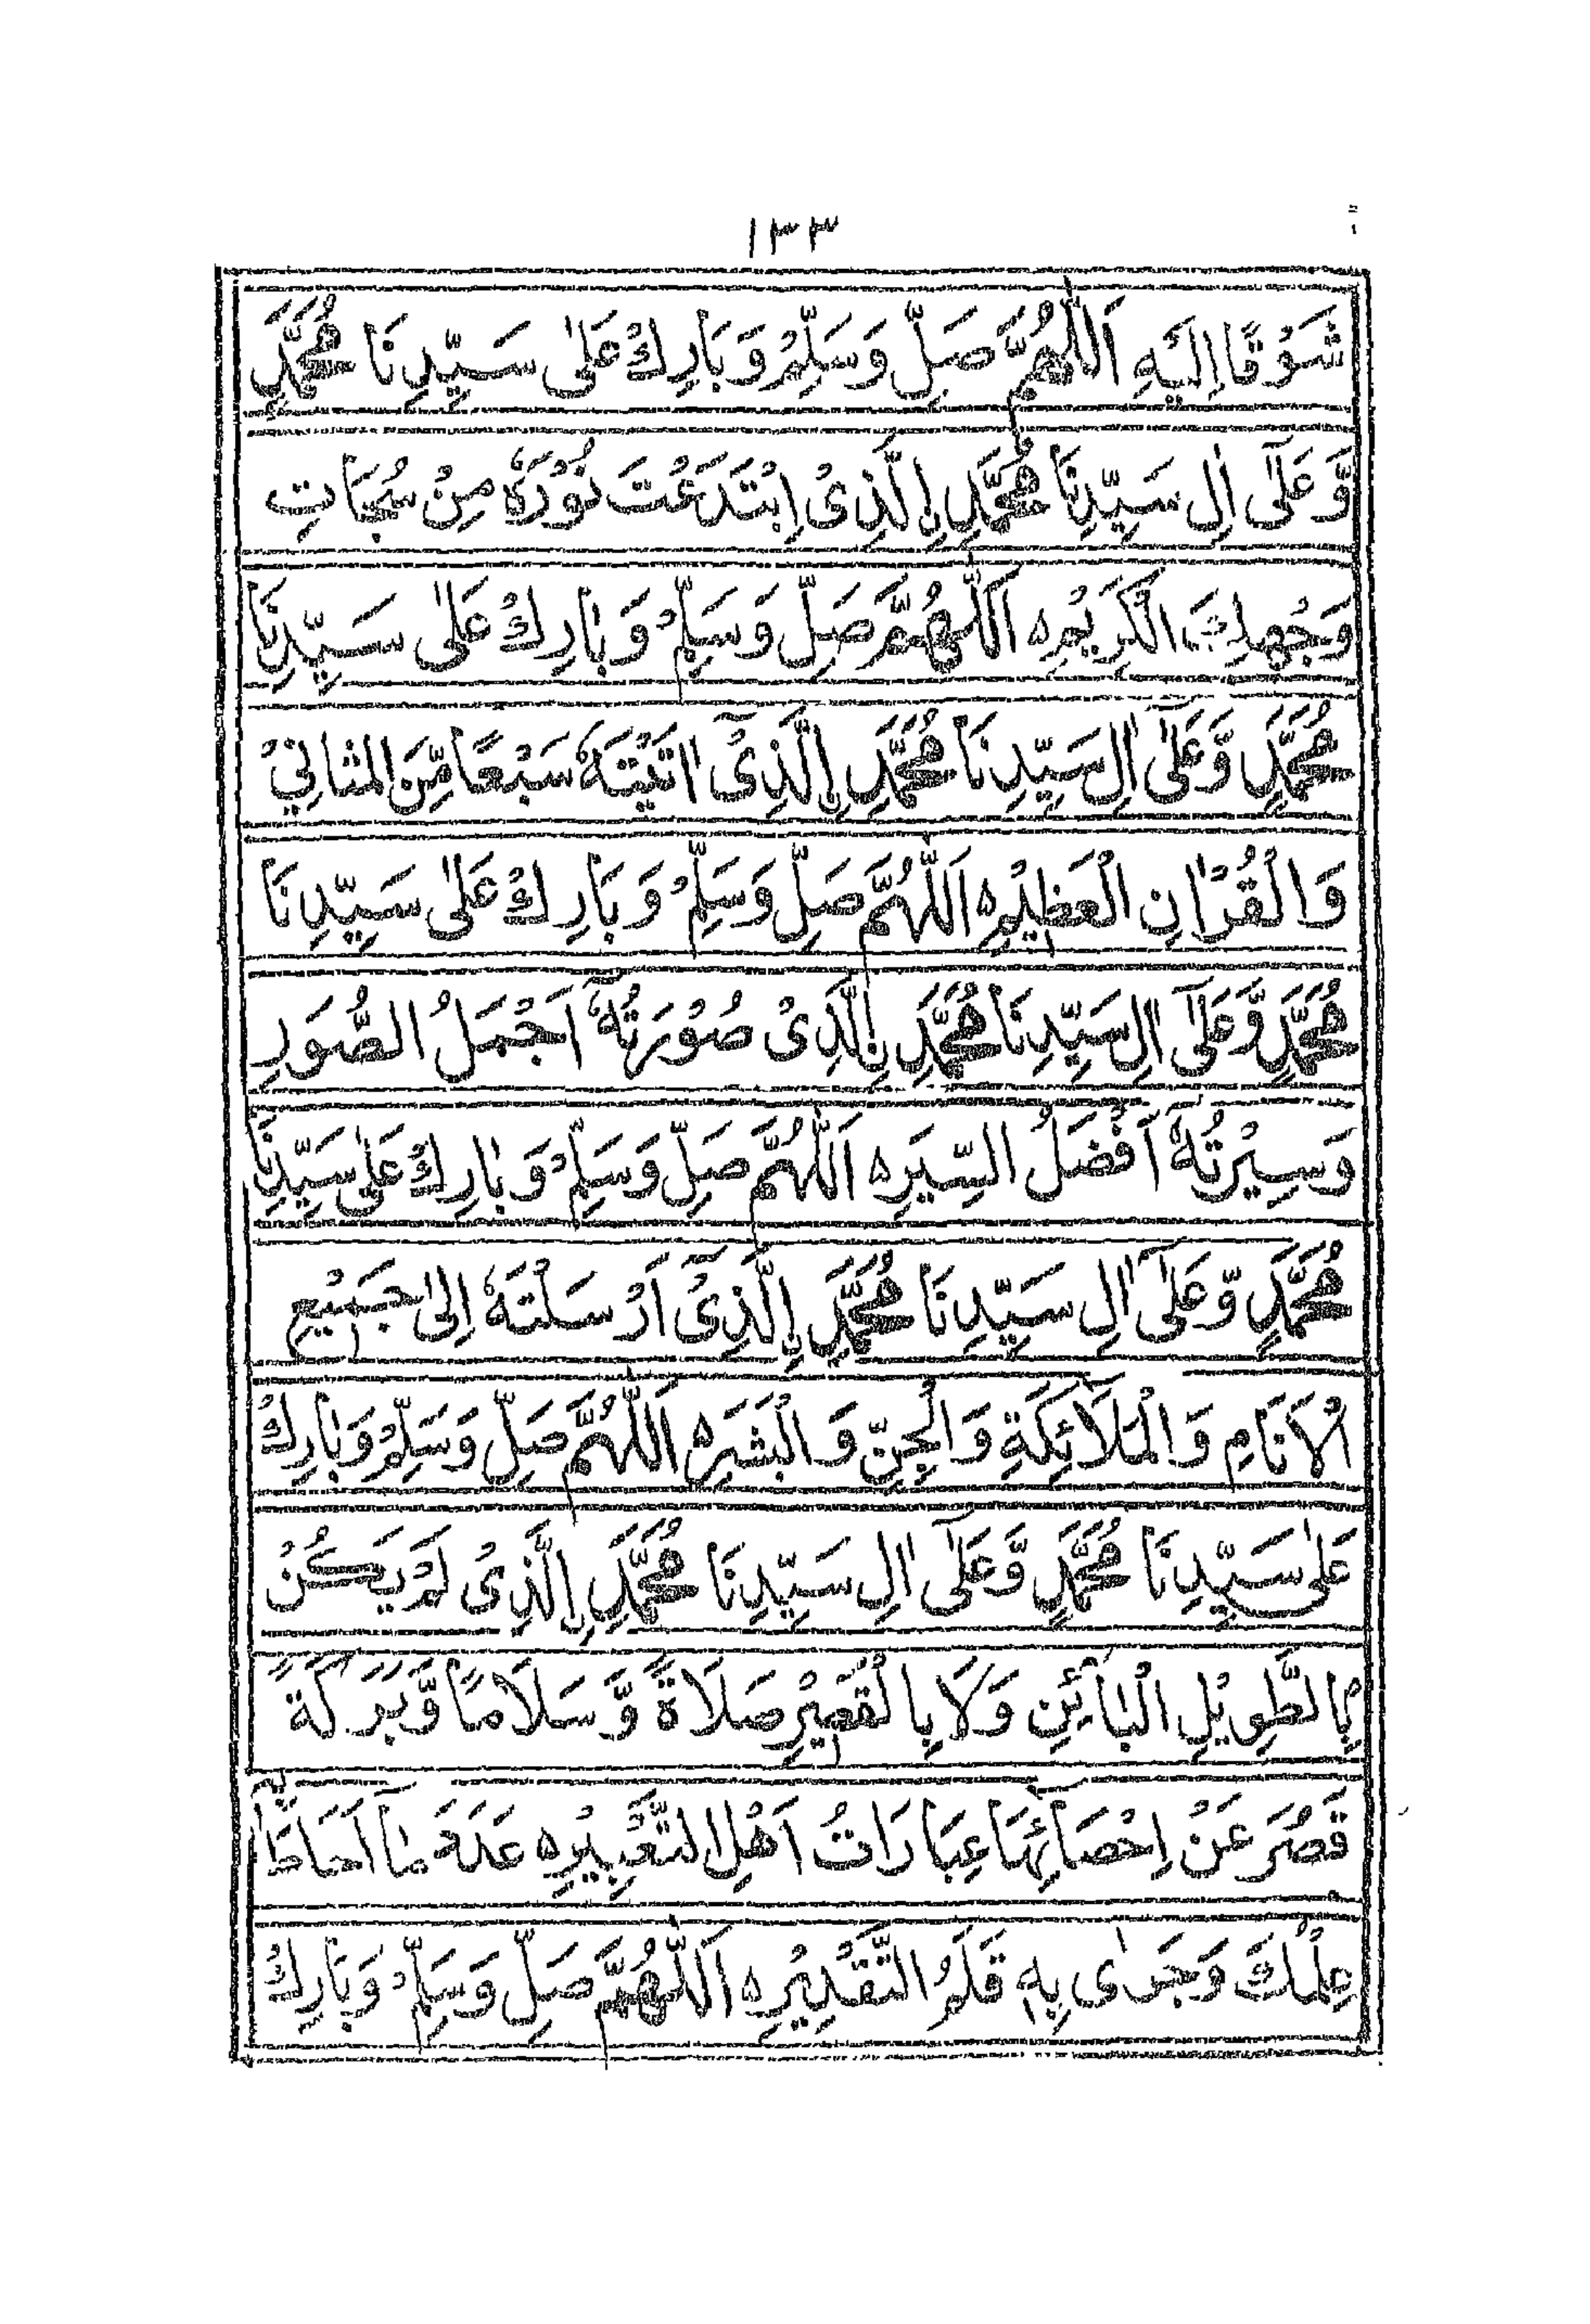 ١٣٣
شَوْقًا اِلَيْهِ اَللّٰهُمَّ صَلِّ وَسَلِّمْ وَبَارِكْ عَلٰى سَيِّدِنَا مُحَمَّدٍ
وَّعَلٰٓى اٰلِ سَيِّدِنَا مُحَمَّدِ اِلَّذِىْ اِبْتَدَعْتَ نُوْرَهٗ مِنْ سُبُحَاتِ
وَجْهِكَ الْكَرِيْمِ ه اَللّٰهُمَّ صَلِّ وَسَلِّمْ وَبَارِكْ عَلٰى سَيِّدِنَا
مُحَمَّدٍ وَّعَلٰٓى اٰلِ سَيِّدِنَا مُحَمَّدِ اِلَّذِىْٓ اٰتَيْتَهٗ سَبْعًا مِّنَ الْمَثَانِيْ
وَالْقُرْاٰنِ الْعَظِيْمِ ه اَللّٰهُمَّ صَلِّ وَسَلِّمْ وَبَارِكْ عَلٰى سَيِّدِنَا
مُحَمَّدٍ وَّعَلٰٓى اٰلِ سَيِّدِنَا مُحَمَّدِ نِالَّذِىْ صُوْرَتُهٗٓ اَجْمَلُ الصُّوَرِ
وَسِيْرَتُهٗٓ اَفْضَلُ السِّيَرِ ه اَللّٰهُمَّ صَلِّ وَسَلِّمْ وَبَارِكْ عَلٰى سَيِّدِنَا
مُحَمَّدٍ وَّعَلٰٓى اٰلِ سَيِّدِنَا مُحَمَّدِ اِلَّذِىْٓ اَرْسَلْتَهٗ اِلٰى جَمِيْعِ
الْاَنَامِ وَالْمَلَآئِكَةِ وَالْجِنِّ وَالْبَشَرِ ه اَللّٰهُمَّ صَلِّ وَسَلِّمْ وَبَارِكْ
عَلٰى سَيِّدِنَا مُحَمَّدٍ وَّعَلٰٓى اٰلِ سَيِّدِنَا مُحَمَّدِ اِلَّذِىْ لَمْ يَكُنْ
بِالطَّوِيْلِ الْبَائِنِ وَلَا بِالْقَصِيْرِ صَلَاةً وَّسَلَامًا وَّبَرَكَةً
قَصُرَ عَنْ اِحْصَآئِهَا عِبَارَاتُ اَهْلِ التَّعْبِيْرِ ه عَدَدَ مَآ اَحَاطَ بِهٖ
عِلْمُكَ وَجَرٰى بِهٖ قَلَمُ التَّقْدِيْرِ ه اَللّٰهُمَّ صَلِّ وَسَلِّمْ وَبَارِكْ